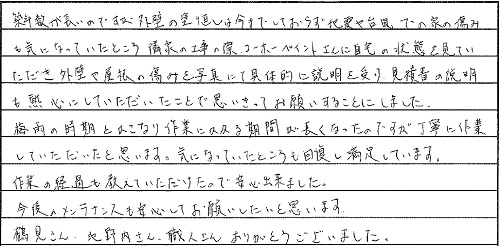 築年数が長いのですが外壁の塗り直しは今までしておらず地震や台風での家の傷み
も気になっていたところ隣家の工事の際、ユーホーペイントさんに自宅の状態を見てい
ただき外壁や屋根の傷みを写真にて具体的に説明を受け、見積書の説明
も熱心にしていただいたことで思いきってお願いすることにしました。
梅雨の時期とかさなり作業に入る期間が長くなったのですが丁寧に作業
していただいたと思います。気になっていたところも回復し満足しています。
作業の経過も教えていただけたので安心出来ました。
今後のメンテナンスも安心してお願いしたいと思います。
鶴見さん、池野内さん、職人さん ありがとうございました。